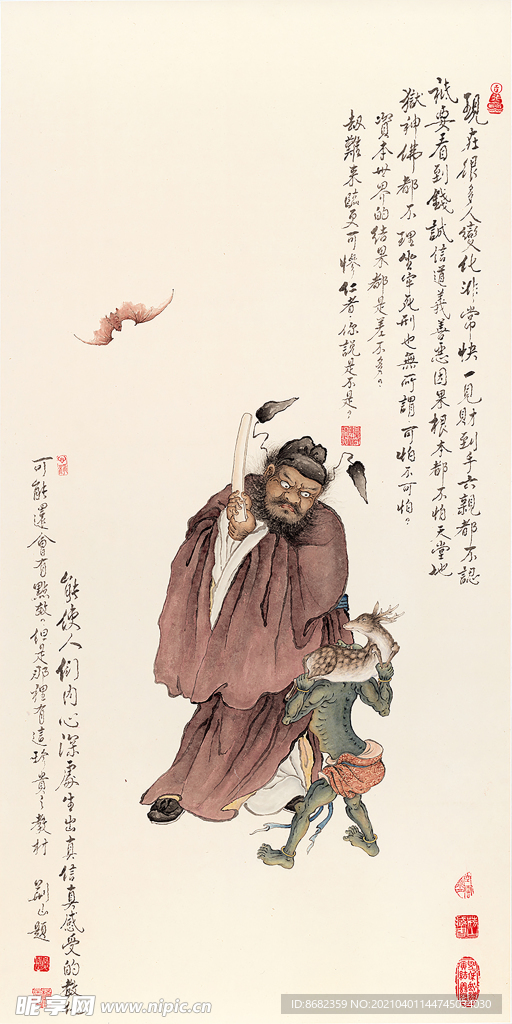 現在很多人變化非常快一見財到手六親都不認
祇要看到錢誠信道義善惡因果根本都不怕天堂地
獄神佛都不理坐牢死刑也無所謂可怕不可怕？
資本世界的結果都是差不多。
劫難来臨更可慘仁者。你說是不是？
能使人们内心深處生出真信真感受的教化
可能還會有點效。但是那裡有這珍貴之教材
荆山題
昵享网 www.nipic.cn
ID:8682359 NO:20210401144745034030